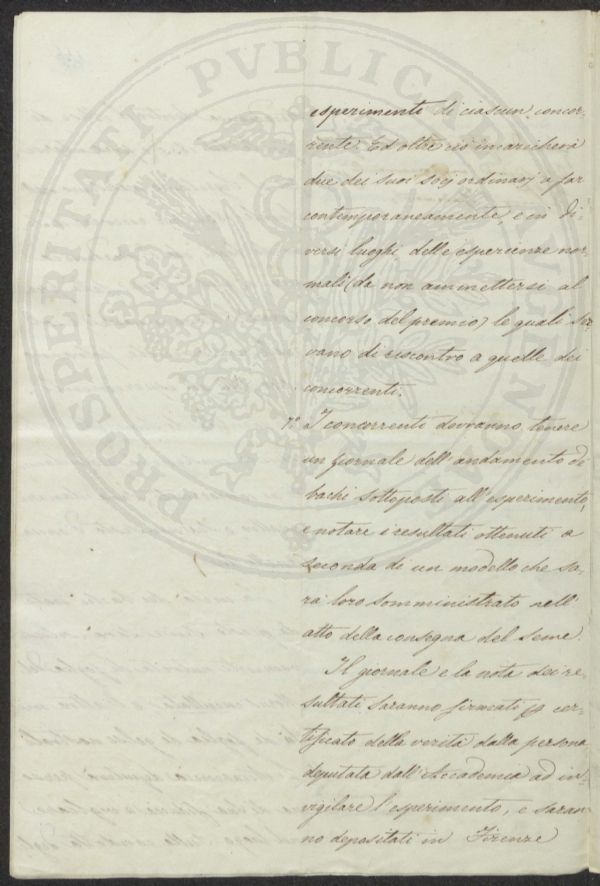 esperimento di ciascun concor-
rente. Ed oltre ciò incaricherà
due dei suoi socj ordinarj a far
contemporaneamente, e in di-
versi luoghi, delle esperienze nor-
mali (da non ammettersi al
concorso del premio) le quali ser-
vano di riscontro a quelle dei
concorrenti.
7° I concorrenti dovranno tenere
un giornale dell'andamento di
bachi sottoposti all'esperimento,
e notare i resultati ottenuti a
seconda di un modello che sa-
rà loro somministrato nell'
atto della consegna del seme.
Il giornale e la nota dei re-
sultati saranno firmati p cer-
tificato della verità dalla persona
deputata dall'Accademia ad in-
vigilare l'esperimento, e saran-
no depositati in Firenze
PROSPERITATI PVBLICAE